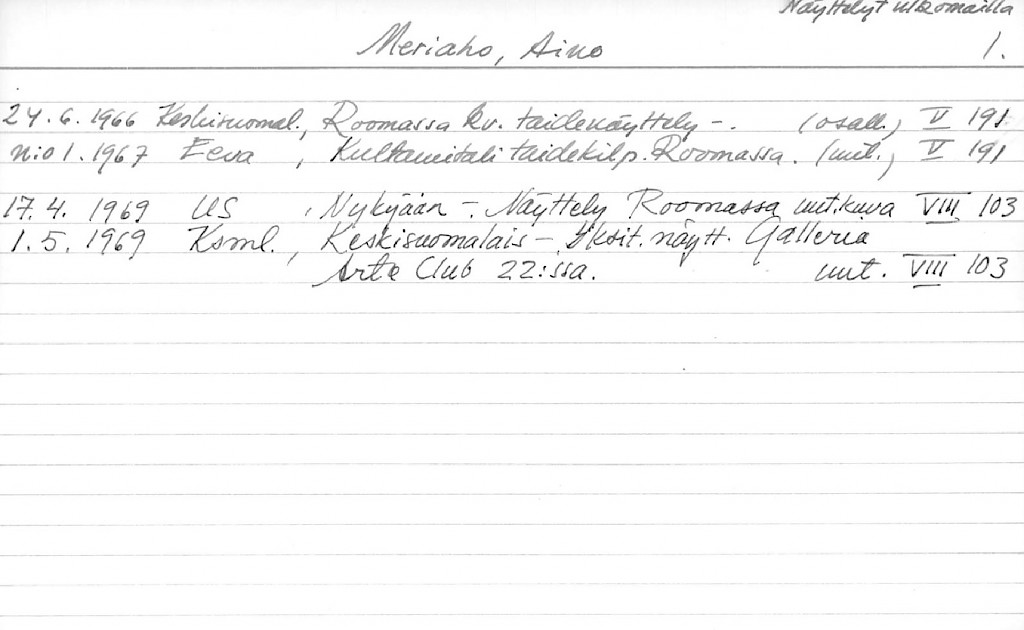 Näyttelyt ulkomailla
Meriaho, Aino 1.
24.6.1966 Keskisuomal., Roomassa kv. taidenäyttely -. (osall.) V 191
N:o 1. 1967 Eeva , Kultamitali taidekilp. Roomassa. (mit.) V 191
17.4. 1969 US , Nykyään -. Näyttely Roomassa uut.kuva VIII 103
1.5. 1969 Ksml. , Keskisuomalais - Yksit. näytt. Galleria
Arte Club 22:ssa. uut. VIII 103